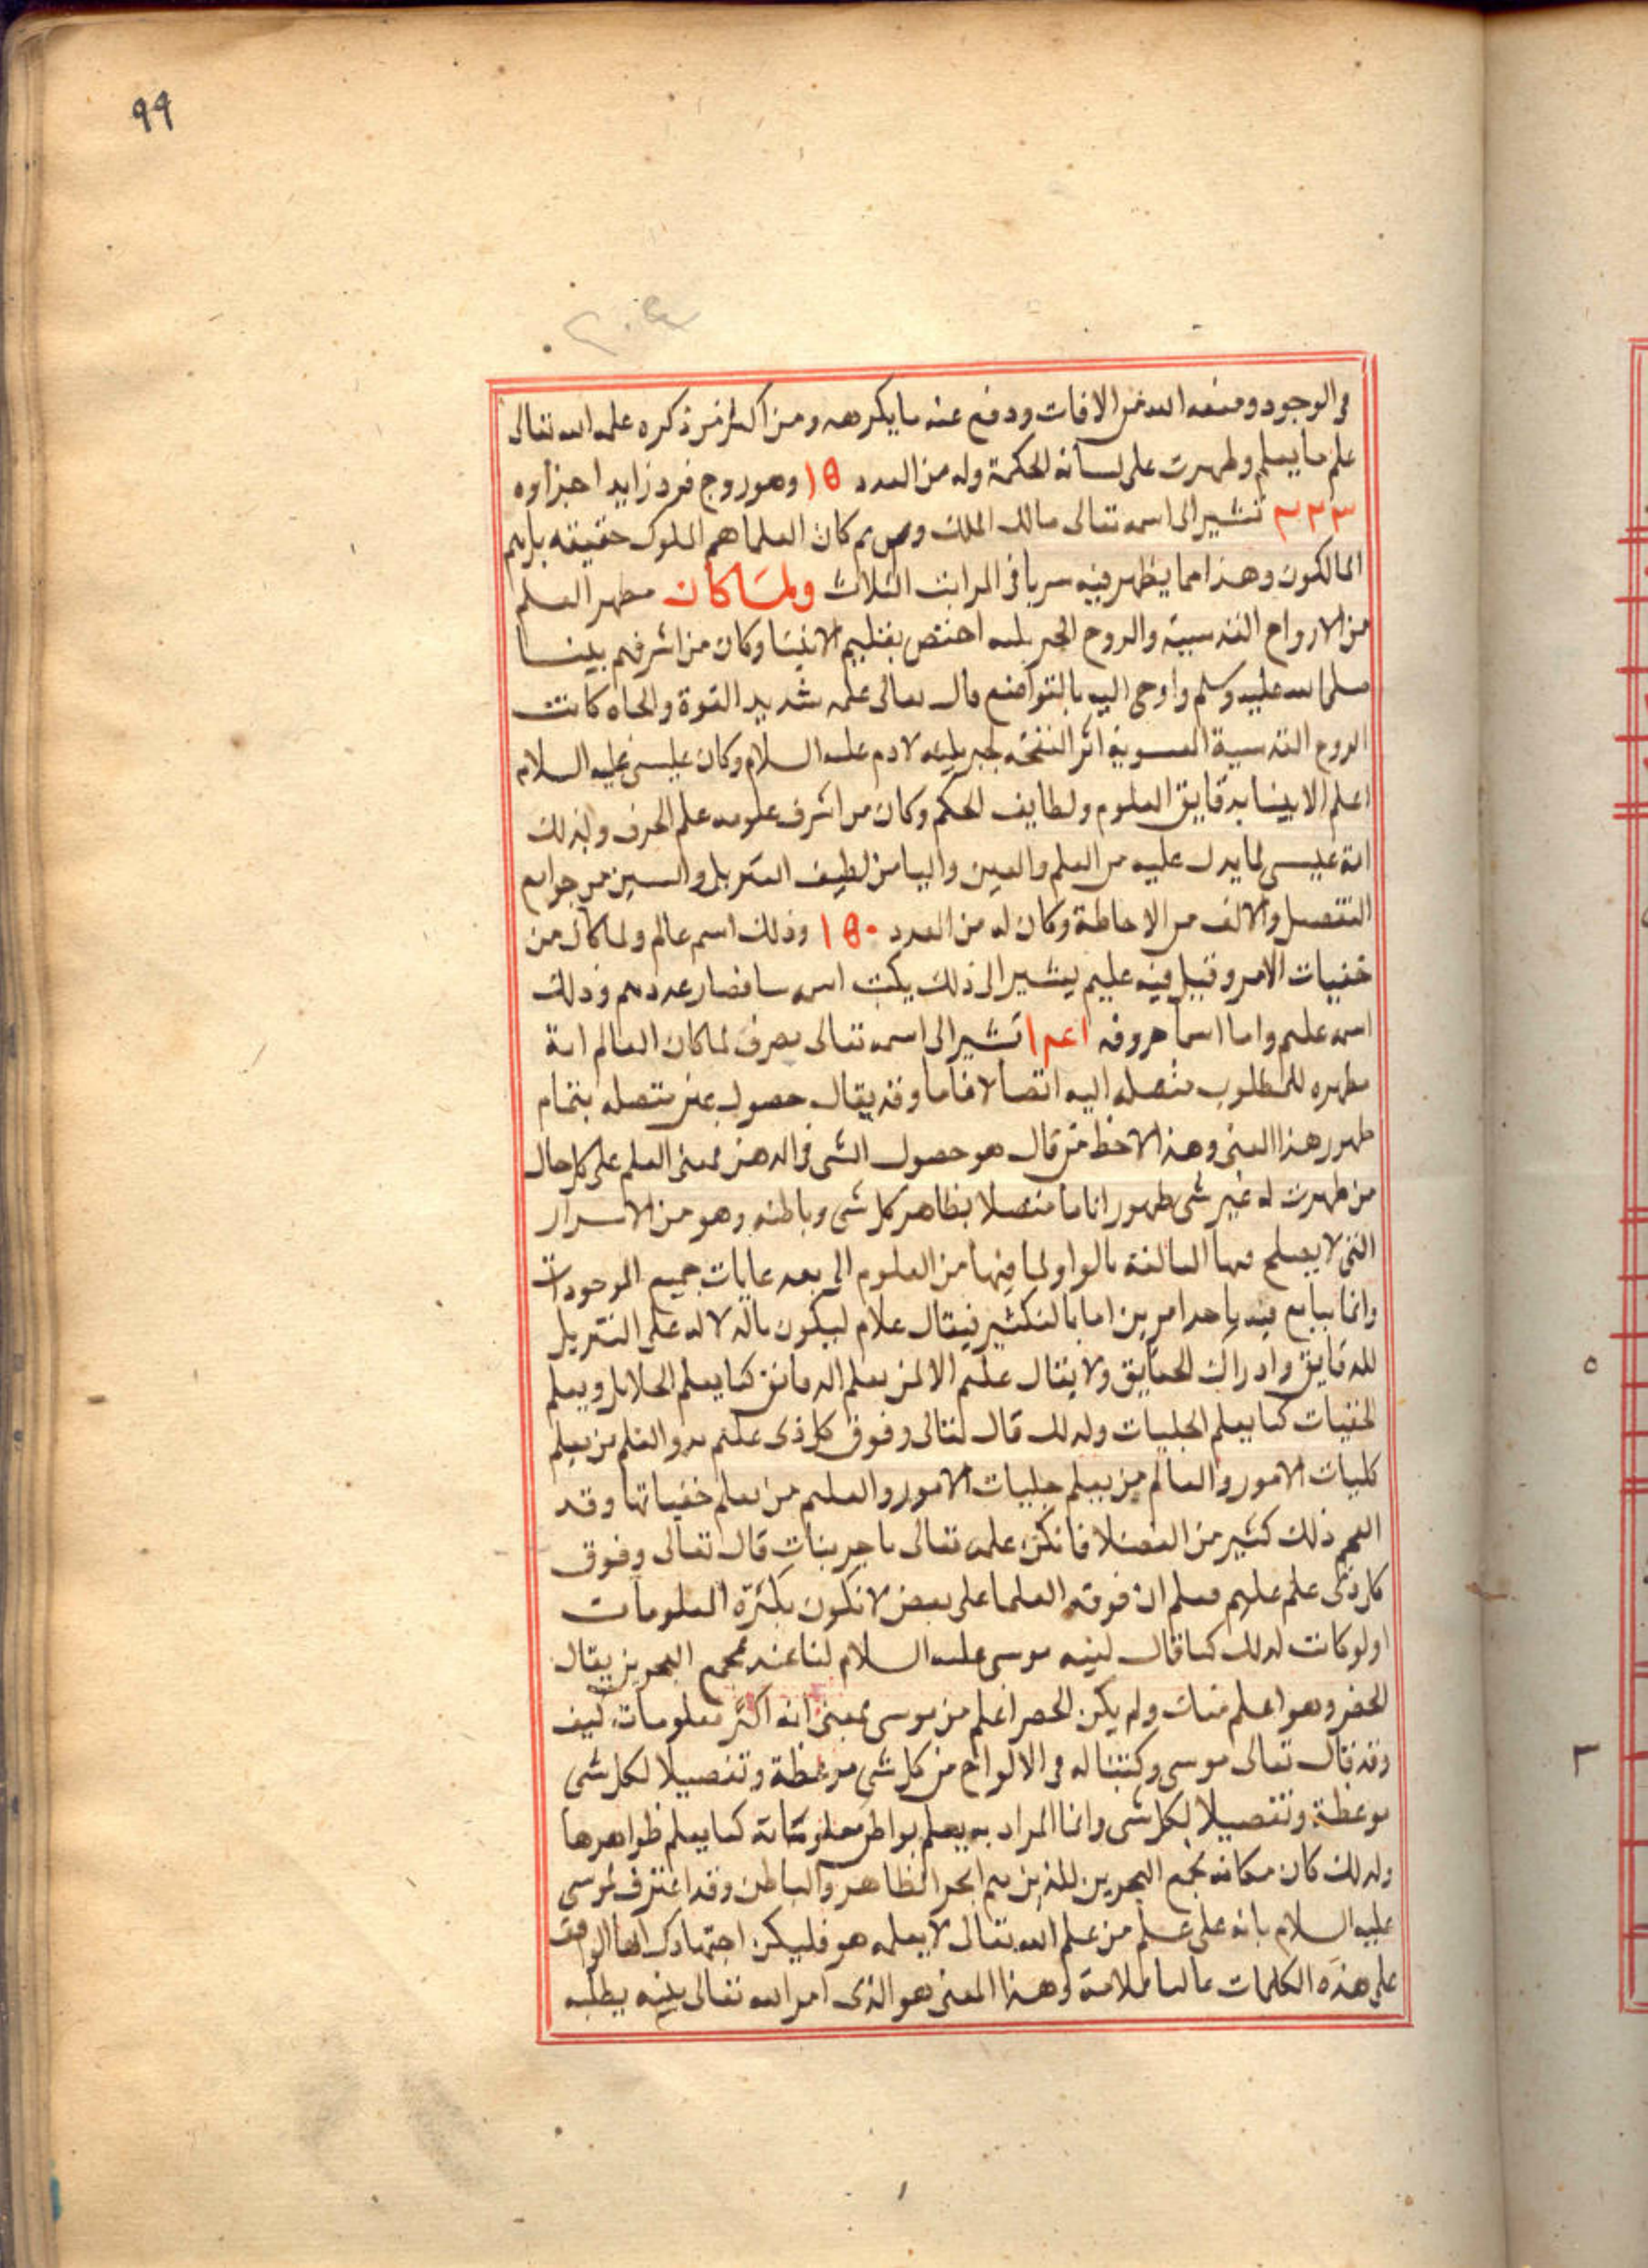 ٩٩
في الوجود ومنعه الله من الافات ودفع عنه ما يكرهه ومن اكثر من ذكره علمه الله تعالى
علم ما يعلم وظهرت على لسانه الحكمة وله من العدد ١٥ وهو زوج فرد زايد اجزاوه
٣٢٣ تشير الى اسمه تعالى مالك الملك ومن ثم كان العلما هم الملوك حقيقه بل هم
المالكون وهذا مما يظهر فيه سريا في المراتب الثلاث ولما كان مظهر العلم
من الارواح القدسية والروح الجبريليه اختص بتعليم الانبيا وكان من اشرفهم نبينا
صلى الله عليه وسلم واوحى اليه بالتواضع قال تعالى علمه شديد القوة ولما كانت
الروح القدسية العيسوية اثر النفخه الجبريليه لادم عليه السلام وكان عيسى عليه السلام
اعلم الانبيا بدقايق العلوم ولطايف الحكم وكان من اشرف علومه علم الحرف ولذلك
انه عيسى لما يدل عليه من العلم والعين واليا من لطيف التنزيل والسين من جوامع
التفصيل والالف من الاحاطة وكان له من العدد ١٥٠ وذلك اسم عالم ولما كان من
خفيات الامر وقيل فيه عليم يشير الى ذلك يكتب اسمه سا فصار عددهم وذلك
اسمه عليم واما اسما حروفه ١٤١ تشير الى اسمه تعالى مصرف لما كان العالم انه
مظهره للمطلوب متصله اليه اتصالا تاما وقد يقال حصول عين متصله بتمام
ظهور هذا المعنى وهذا لاحظ من قال هو حصول الشي في الذهن فمعنى العلم على كل حال
من ظهرت له عين شي ظهورا تاما متصلا بظاهر كل شي وباطنه وهو من الاسرار
التي لا يصلح فيها المبالغة بالواو لما فيها من العلوم الى بعد غايات جميع الموجودات
وانما يبالغ فيه باحد امرين اما بالتكثير فيقال علام ليكون بالدلاله على التنزيل
للدقايق وادراك الحقايق ولا يقال عليم الا لمن يعلم الدقايق كما يعلم الجلايل ويعلم
الخفيات كما يعلم الجليات ولذلك قال تعالى وفوق كل ذي علم عليم والعلم من يعلم
كليات الامور والعالم من يعلم جليات الامور والعليم من يعلم خفياتها وقد
العجم ذلك كثير من الفضلا فانكر علمه تعالى باجزييات قال تعالى وفوق
كل ذي علم عليم فعلم ان فوقه العلما على بعض لا تكون بكثرة المعلومات
اولو كانت لذلك كما قال لنبيه موسى عليه السلام لنا عند مجمع البحرين يقال
الخضر وهو اعلم منك ولم يكن الخضر اعلم من موسى بمعنى انه اكثر معلومات كيف
وقد قال تعالى موسى وكتبنا له في الالواح من كل شي موعظة وتفصيلا لكل شي
موعظة وتفصيلا لكل شي وانما المراد به يعلم بواطن معلوماته كما يعلم ظواهرها
ولذلك كان مكانه مجمع البحرين اللذين هم ابحر الظاهر والباطن وقد اعترف لموسى
عليه السلام بانه على علم من علم الله تعالى لا يعلمه هو فليكن اجتهادك ايها الواقف
على هذه الكلمات وهذا المعنى هو الذي امر الله تعالى نبيه يطلبه